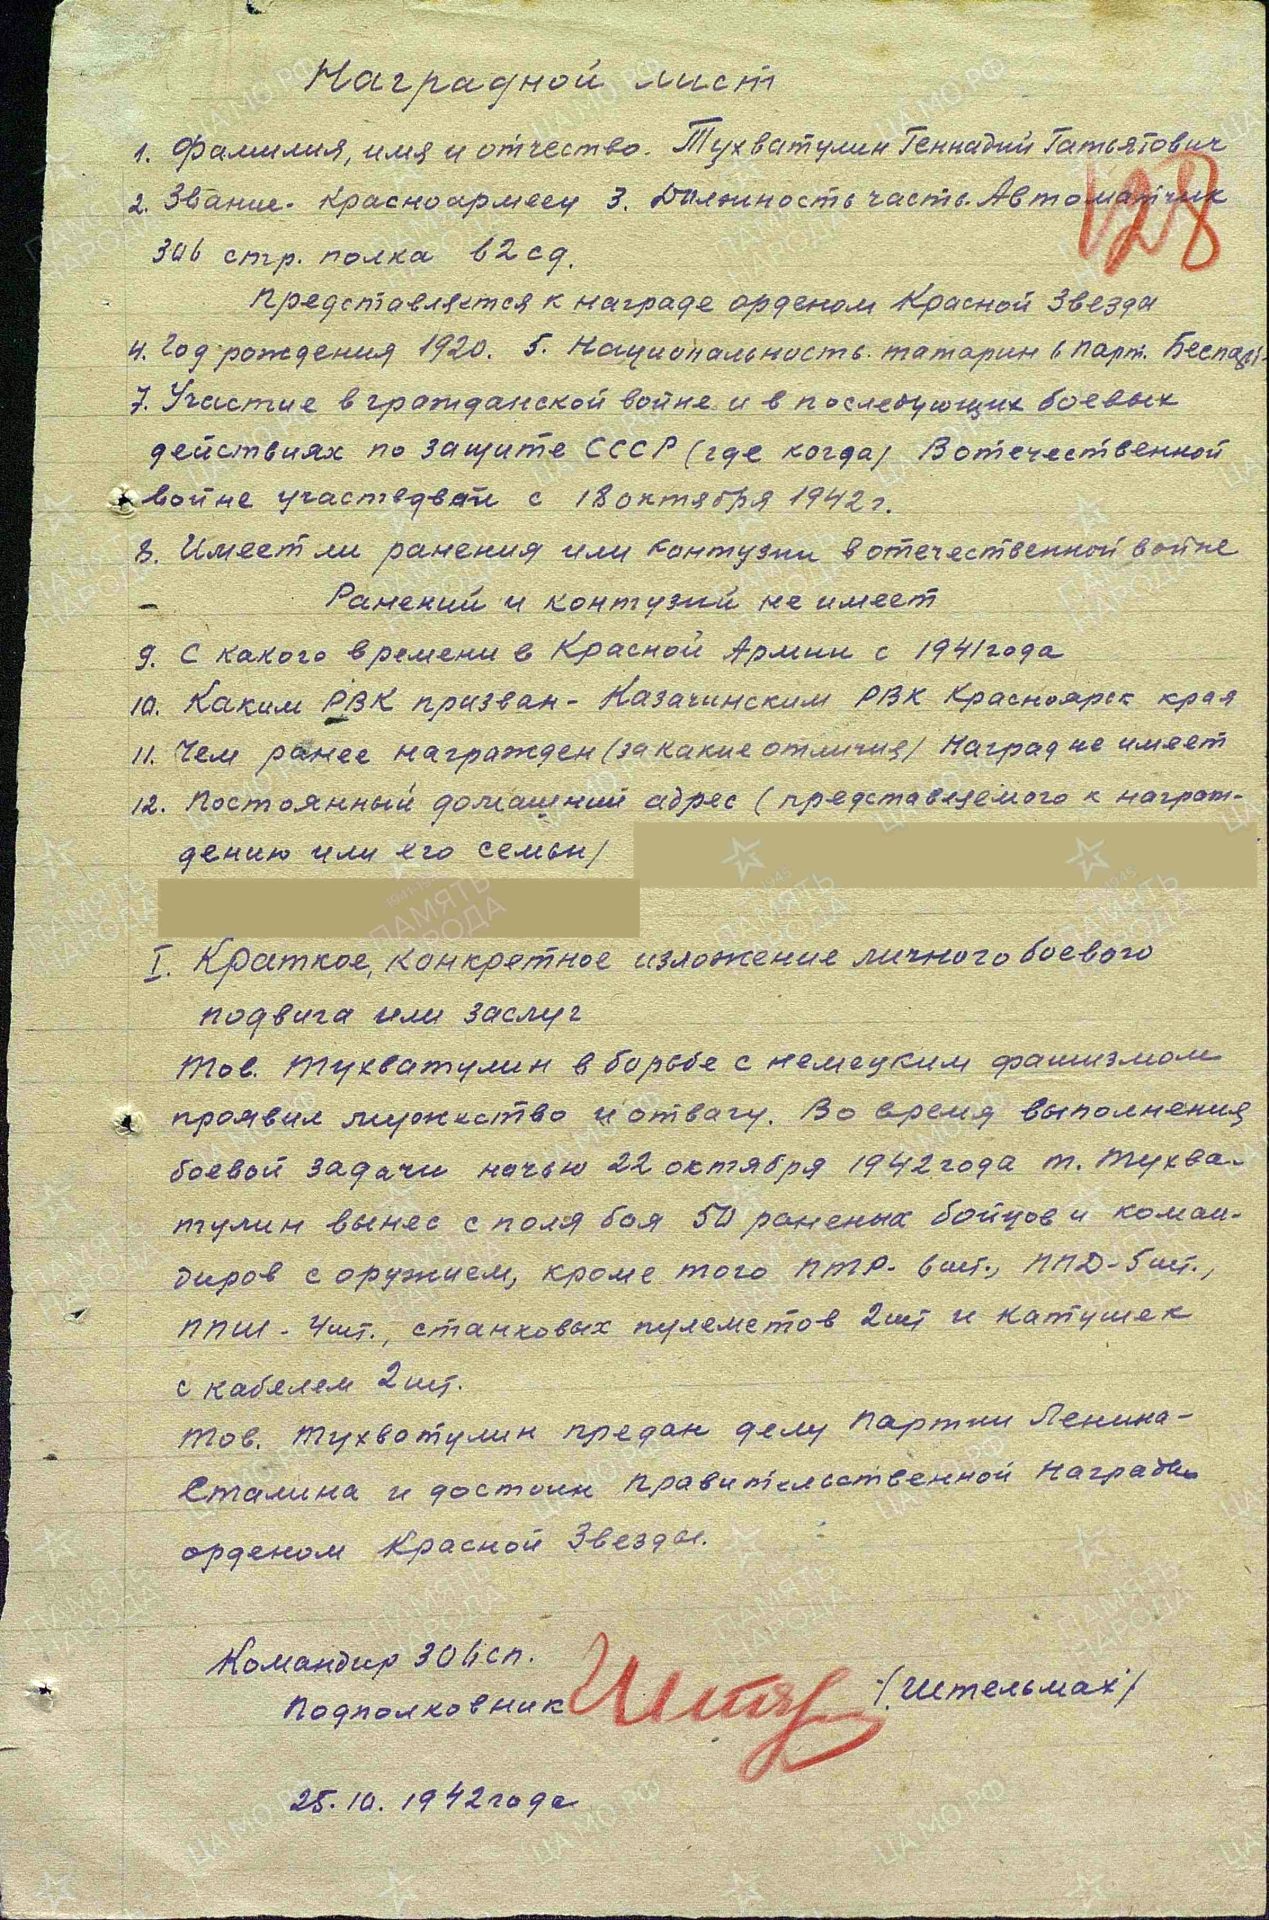 Наградной лист
1. Фамилия, имя и отчество. Тухватулин Геннадий Гатьятович
128
2. Звание. Красноармеец 3. Должность часть. Автоматчик
306 стр. полка 62 сд.
Представляется к награде орденом Красной Звезда
4. Год рождения 1920. 5. Национальность. татарин 6 парт.
7. Участие в гражданской войне и в последующих боевых
действиях по защите СССР (где когда) В отечественной
войне участвовал с 18 октября 1942 г.
8. Имеет ли ранения или контузии в отечественной войне
– Ранений и контузий не имеет
9. С какого времени в Красной Армии с 1941 года
10. Каким РВК призван - Казачинским РВК Красноярск края
11. Чем ранее награжден (за какие отличия) Наград не имеет
12. Постоянный домашний адрес (представляемого к награж-
дению или его семьи)
I. Краткое, конкретное изложение личного боевого
подвига или заслуг
Тов. Тухватулин в борьбе с немецким фашизмом
проявил мужество и отвагу. Во время выполнения
боевой задачи ночью 22 октября 1942 года т. Тухва-
тулин вынес с поля боя 50 раненых бойцов и коман-
диров с оружием, кроме того ПТР- 6 шт., ППД- 5 шт.,
ППШ - 4 шт., станковых пулеметов 2 шт и катушек
с кабелем 2 шт.
Тов. Тухватулин предан делу Партии Ленина-
Сталина и достоин Правительственной Награды
орденом Красной Звезды.
Командир 306 сп.
Подполковник (Штельмах)
25.10.1942 года
ЦАМО РФ
ПАМЯТЬ
НАРОДА